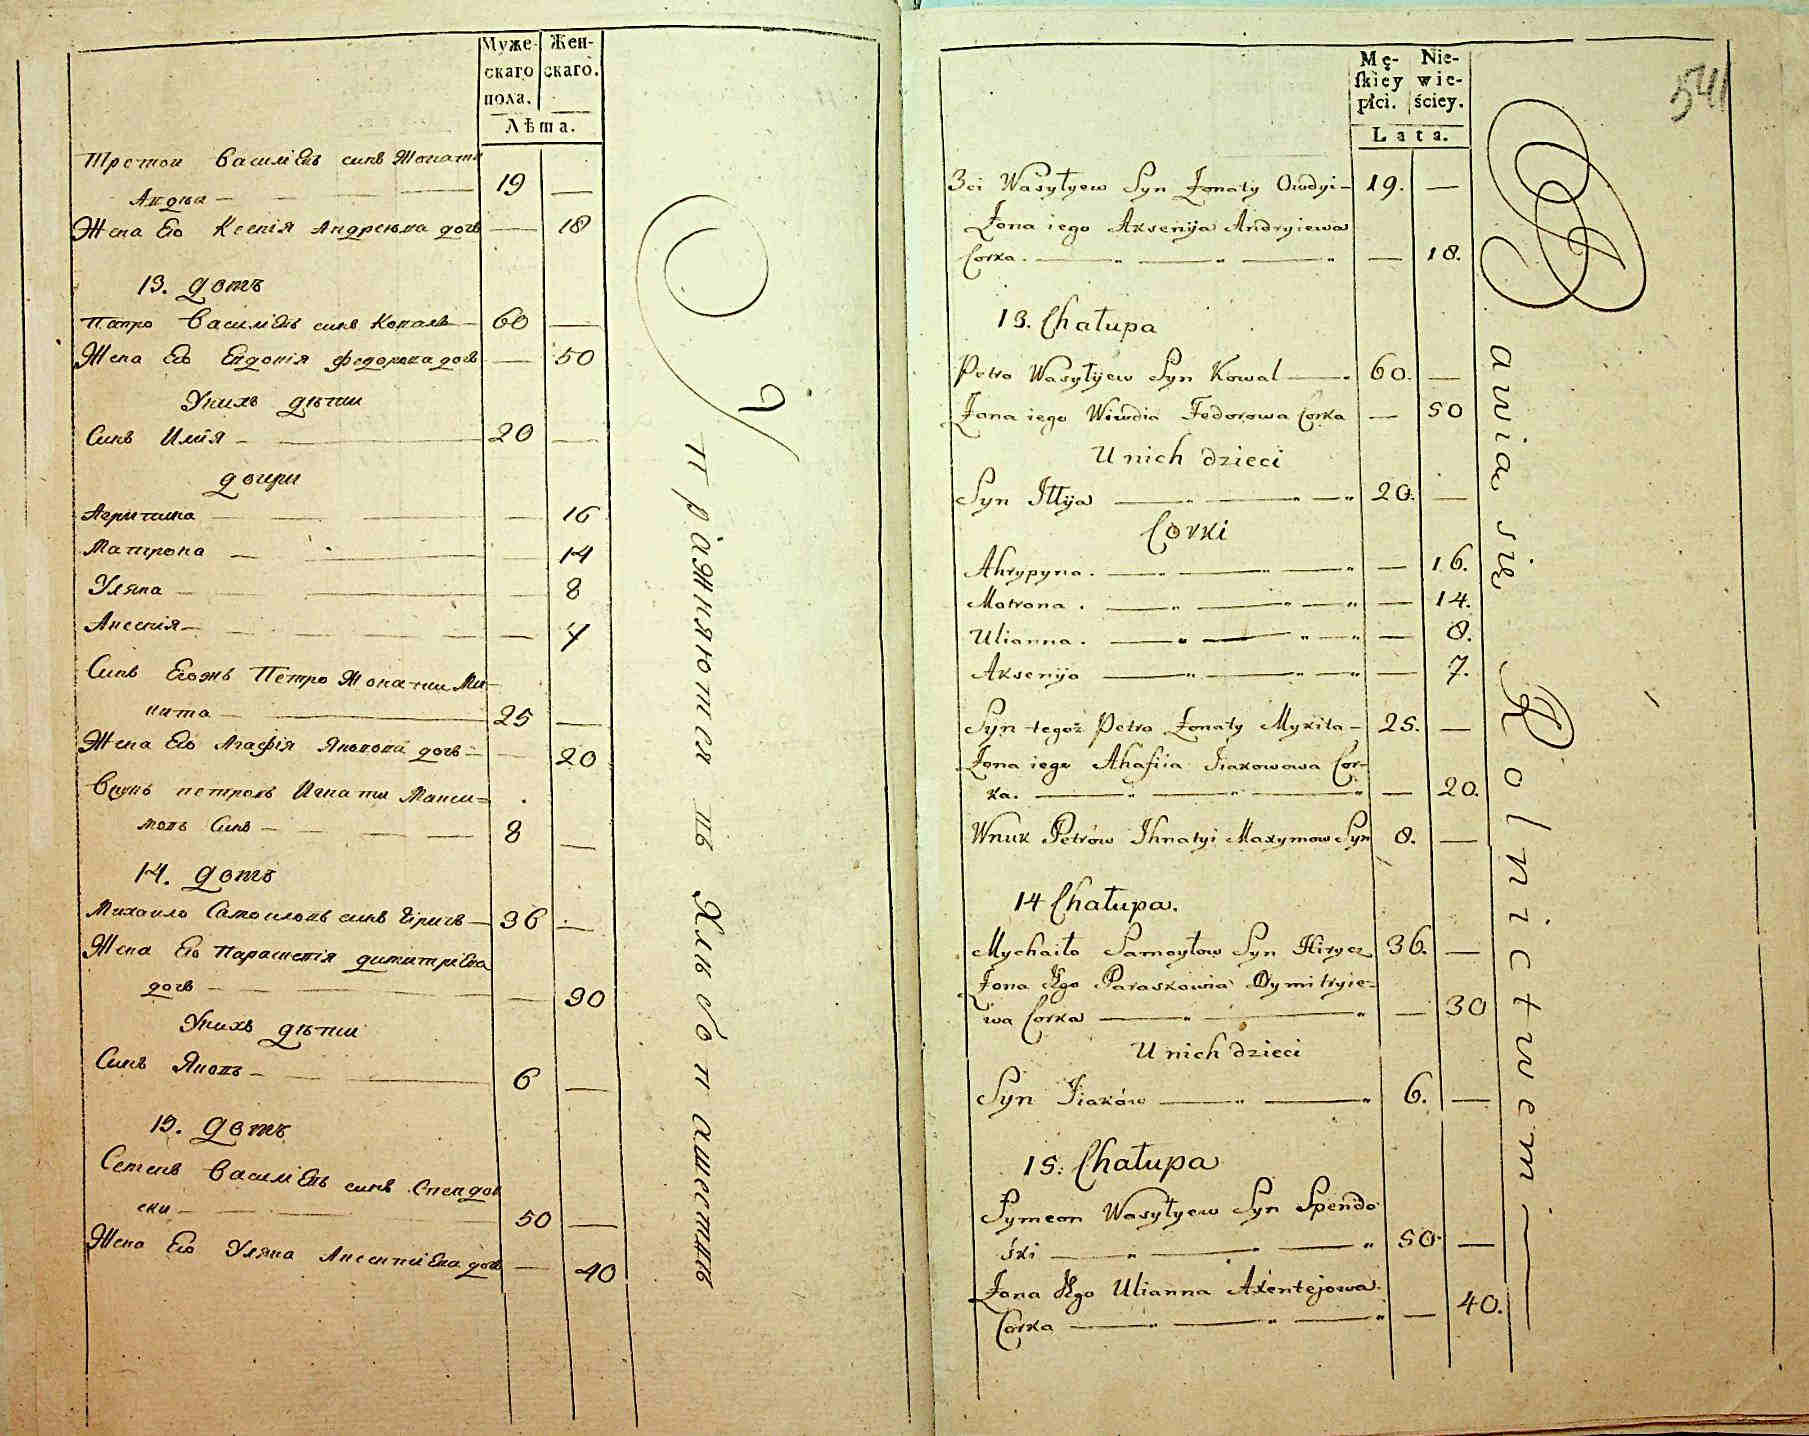 Муже-
скаго
пола.
Жен-
скаго.
Лѣта.
Третои Василіевъ синъ Жонати
Авдѣи 19
Жена Его Ксенія Андреева дочь 18
13. домъ
Петро Василіевъ синъ Коваль 60
Жена Его Евдокія Федорова дочь 50
Унихъ дѣти
Синъ Илія 20
дочери
Агрипина 16
Матрона 14
Уляна 8
Ксенія 7
Синъ Егожъ Петро Жонатий Ми-
кита 25
Жена Его Агафія Яковова дочь 20
Внукъ петровъ Игнатий Макси-
мовъ Синъ 8
14. домъ
Михаило Самоиловъ синъ Гиричъ 36
Жена Его Параскевія димитріева
дочь 30
Унихъ дѣти
Синъ Яковъ 6
15. домъ
Семенъ Василіевъ синъ Спендов
ски 50
Жена Его Уляна Аксентиева дочь 40
Упражняются въ Хлѣбопашествѣ
541
Mę-
skiey
płci.
Nie-
wie-
ściey.
Lata.
3ci Wasyłyew Syn Żonaty Owdyi 19.
Żona iego Axsenija Andryiewa
Corka. 18.
13. Chałupa
Petro Wasyłyiew Syn Kowal 60.
Żona iego Wiwdia Fedorowa Corka 50
U nich dzieci
Syn Iłłyia 20.
Corki
Ahrypyna. 16.
Motrona. 14.
Ulianna. 8.
Axsenija 7.
Syn tegoż Petro Żonaty Myxita 25.
Żona iego Ahafiia Jiaxowowa Cor-
ka. 20.
Wnuk Petrów Ihnatyi Maxymow Syn 8.
14 Chałupa.
Mychaiło Samoyłow Syn Hirycz 36.
Żona Ego Paraskowia Dymitryie-
wa Corka 30
U nich dzieci
Syn Jiaków 6.
15. Chałupa
Symeon Wasyłyew Syn Spendo
ski 50.
Żona Ego Ulianna Axentejowa
Corka 40.
Bawia się Rolnictwem